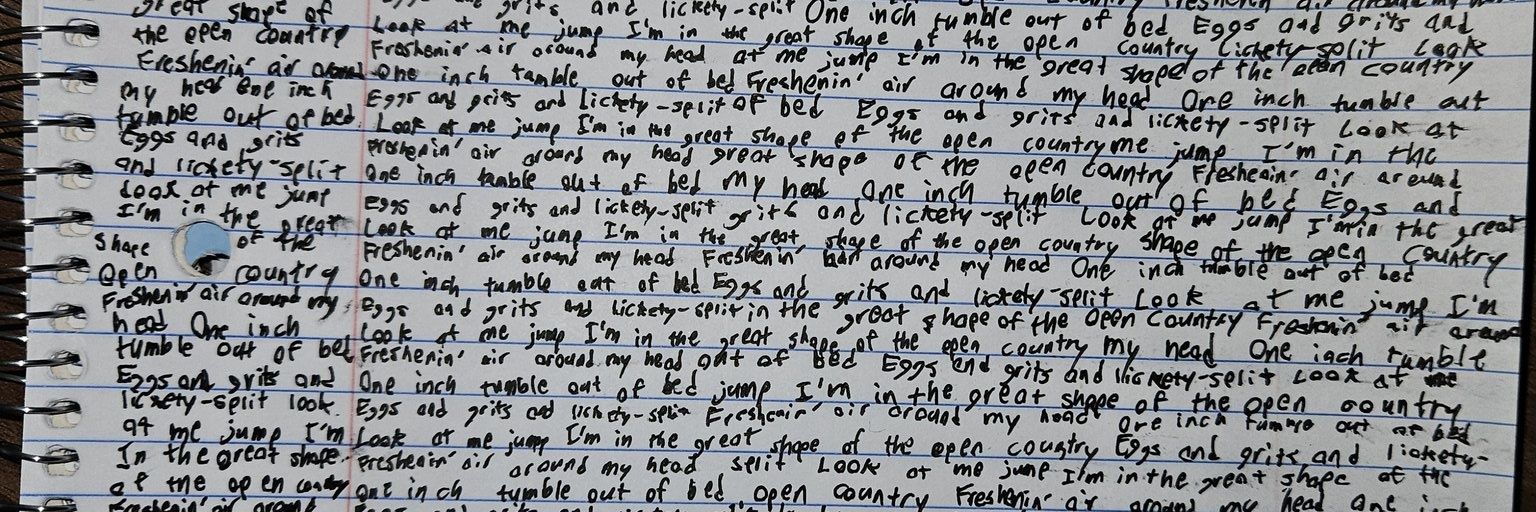 great shape of
the open country
Freshenin' air around
my head One inch
tumble out of bed
Eggs and grits
and lickety-split
Look at me jump
I'm in the great
shape of the
open country
Freshenin' air around my
head One inch
tumble out of bed
Eggs and grits and
lickety-split look
at me jump I'm
In the great shape
of the open country
Freshenin' air around
grits and lickety-split One inch tumble out of bed Eggs and grits and
Look at me jump I'm in the great shape of the open country lickety-split Look
Freshenin' air around my head at me jump I'm in the great shape of the open country
One inch tumble out of bed Freshenin' air around my head One inch tumble out
Eggs and grits and lickety-split of bed Eggs and grits and lickety-split Look at
Look at me jump I'm in the great shape of the open country me jump I'm in the
Freshenin' air around my head great shape of the open country Freshenin' air around
One inch tumble out of bed My head One inch tumble out of bed Eggs and
Eggs and grits and lickety-split grits and lickety-split Look at me jump I'm in the great
Look at me jump I'm in the great shape of the open country shape of the open country
Freshenin' air around my head Freshenin' air around my head One inch tumble out of bed
One inch tumble out of bed Eggs and grits and lickety-split Look at me jump I'm
Eggs and grits and lickety-split in the great shape of the open country Freshenin' air around
Look at me jump I'm in the great shape of the open country my head One inch tumble
Freshenin' air around my head out of bed Eggs and grits and lickety-split Look at me
One inch tumble out of bed jump I'm in the great shape of the open country
Eggs and grits and lickety-split Freshenin' air around my head One inch tumble out of bed
Look at me jump I'm in the great shape of the open country Eggs and grits and lickety-
Freshenin' air around my head split Look at me jump I'm in the great shape of the
One inch tumble out of bed open country Freshenin' air around my head One inch